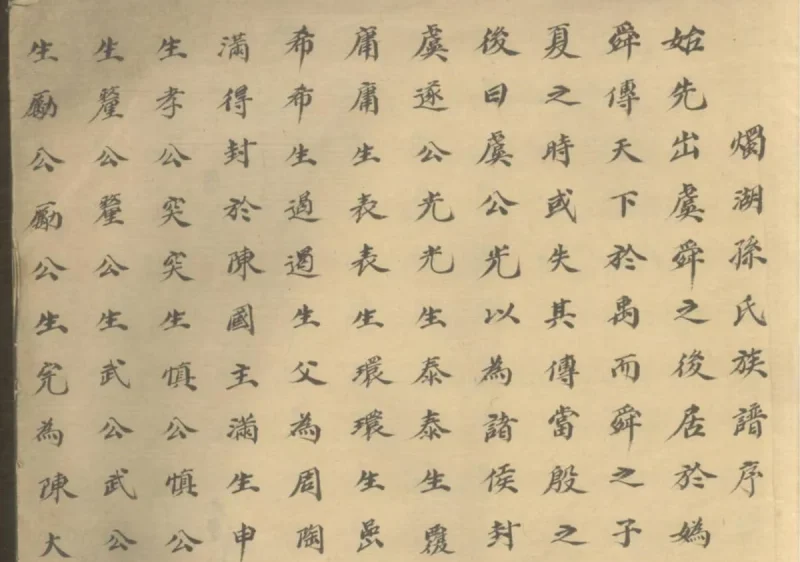 燭湖孫氏族譜序
始先出虞舜之後居於媯
舜傳天下於禹而舜之子
夏之時或失其傳當殷之
後曰虞公光以為諸侯封
虞遂公光光生泰泰生覆
庸庸生表表生環環生
希希生遏遏生父為周陶
滿得封於陳國主滿生申
生孝公突突生慎公慎公
生釐公釐公生武公武公
生厲公厲公生完為陳大